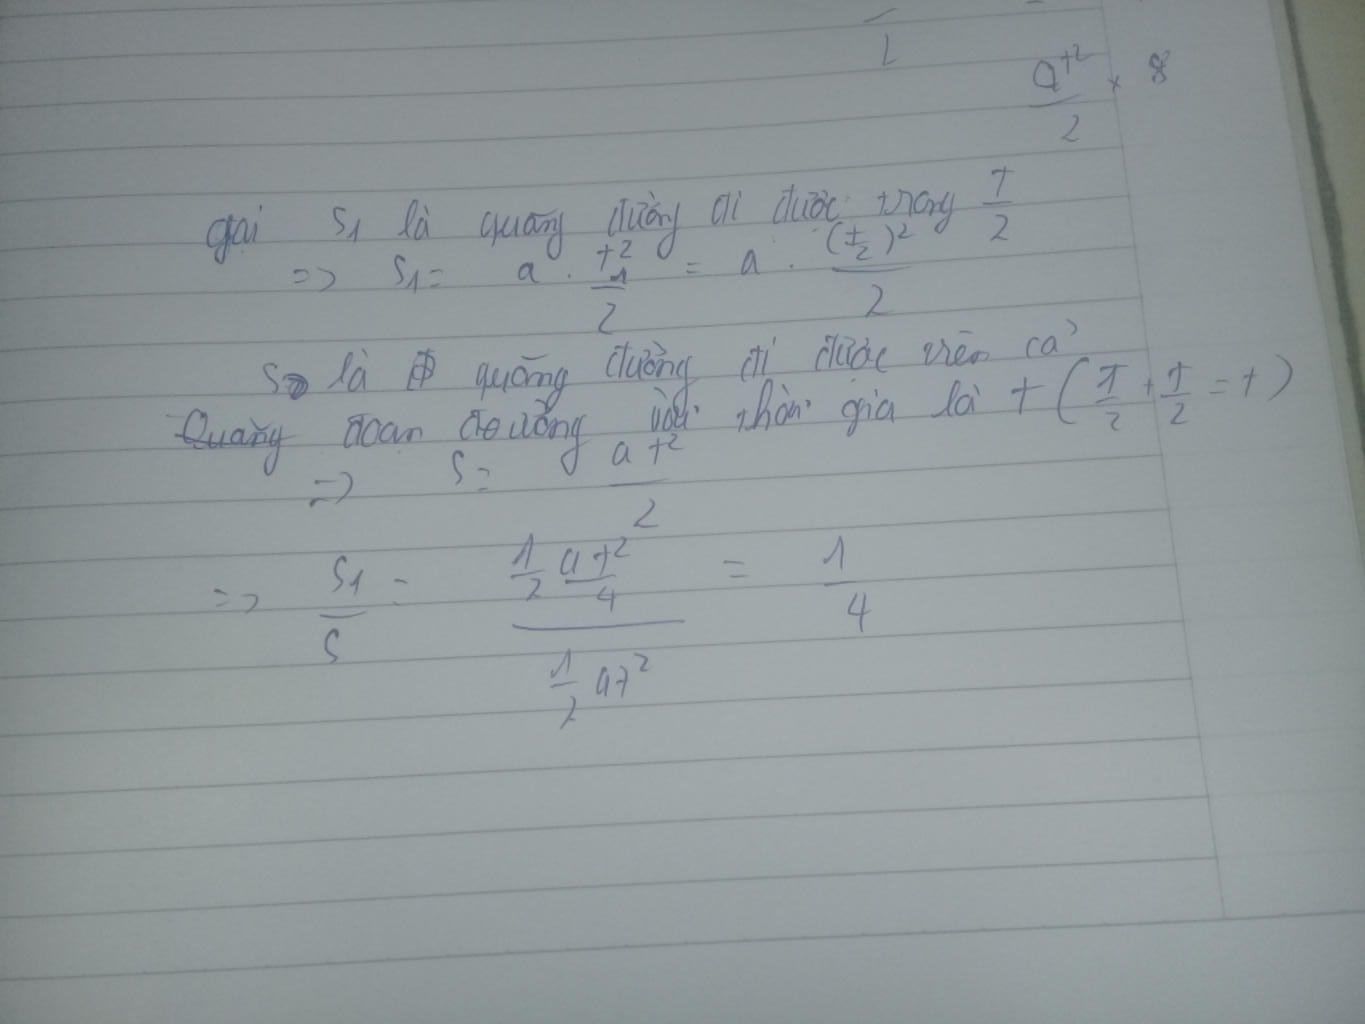 1
at²/2 × 8
gọi S₁ là quãng đường đi được trong T/2
=> S₁ = a . t₁²/2 = a . (t/2)²/2
S là quãng đường đi được trên cả
Quãng đoạn đường với thời gia là t (T/2 + T/2 = t)
=> S = at²/2
=> S₁/S = (1/2 at²/4)/(1/2 at²) = 1/4